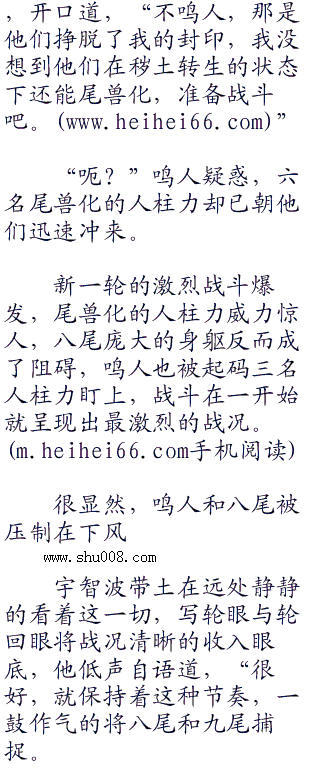 ，开口道，“不鸣人，那是
他们挣脱了我的封印，我没
想到他们在秽土转生的状态
下还能尾兽化，准备战斗
吧。(www.heihei66.com)”
“呃？”鸣人疑惑，六
名尾兽化的人柱力却已朝他
们迅速冲来。
新一轮的激烈战斗爆
发，尾兽化的人柱力威力惊
人，八尾庞大的身躯反而成
了阻碍，鸣人也被起码三名
人柱力盯上，战斗在一开始
就呈现出最激烈的战况。
(m.heihei66.com手机阅读)
很显然，鸣人和八尾被
压制在下风
www.shu008.com
宇智波带土在远处静静
的看着这一切，写轮眼与轮
回眼将战况清晰的收入眼
底，他低声自语道，“很
好，就保持着这种节奏，一
鼓作气的将八尾和九尾捕
捉。